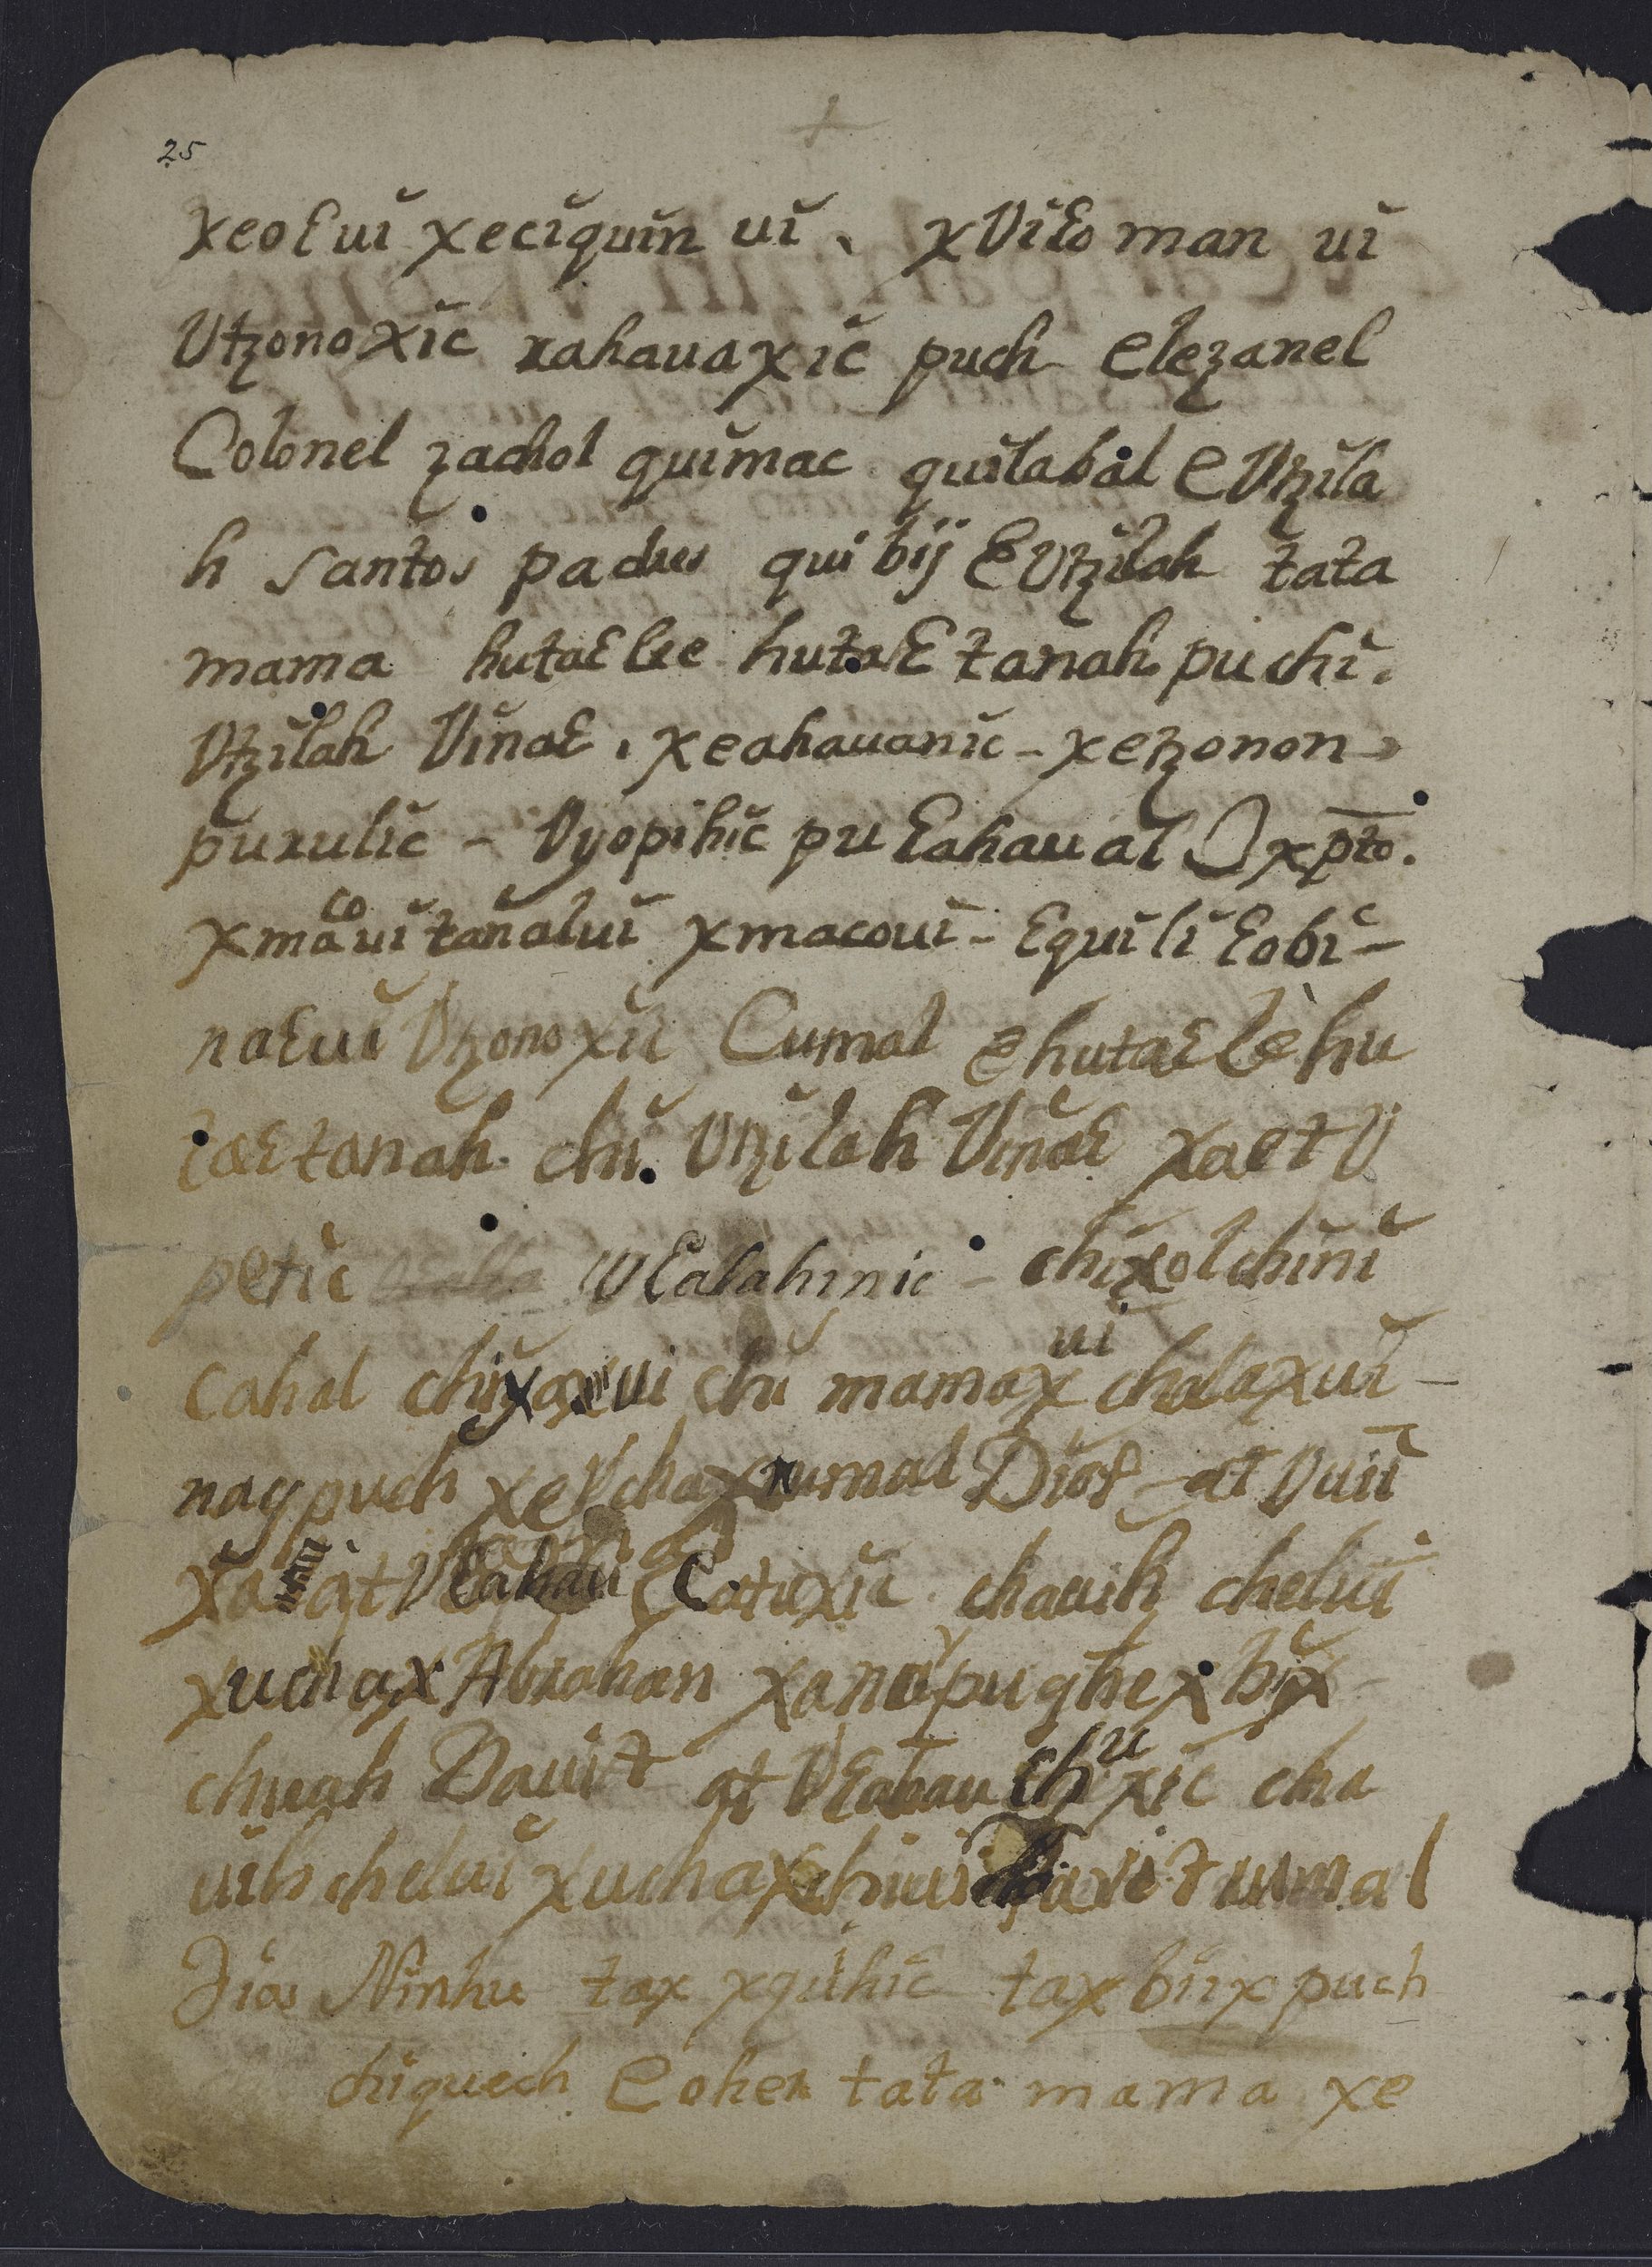 +
25
xeoɛui xeciquin ui, xViɛo man ui
Vtzonoxic rahauaxic puch elezanel
Colonel zachol quimac quilabal e Vtzila
h santos padres qui bij e Vtzilah tata
mama hutaɛ lee hutaɛ tanah puchi.
Vtzilah Vinaɛ, xeahauanic - xetzonon
puxulic - Vyopihic pu ɛahaual Jxpto.
xmacoui tanalui xmacoui - ɛquili ɛobi -
naɛui Vtzonoxii Cumal e hutaɛ lè hu
taɛ tanah chi Vtzilah Vinaɛ xaet V
petic Vɛalahinic - chixolchini
cahal chi chi mamax ui chalaxui -
nay puch xeVchax rumal Dios at Vuii
xa at Vɛahau ɛatuxic chauih chelui
xuchax Abrahan xana puqhex bix
chuah Dauit at Vɛahau chuxic cha
uih chelui xuchax chiui Dauit umal
Dios Ninhu tax xquihic tax biix puch
chiquech e oher tata mama xe